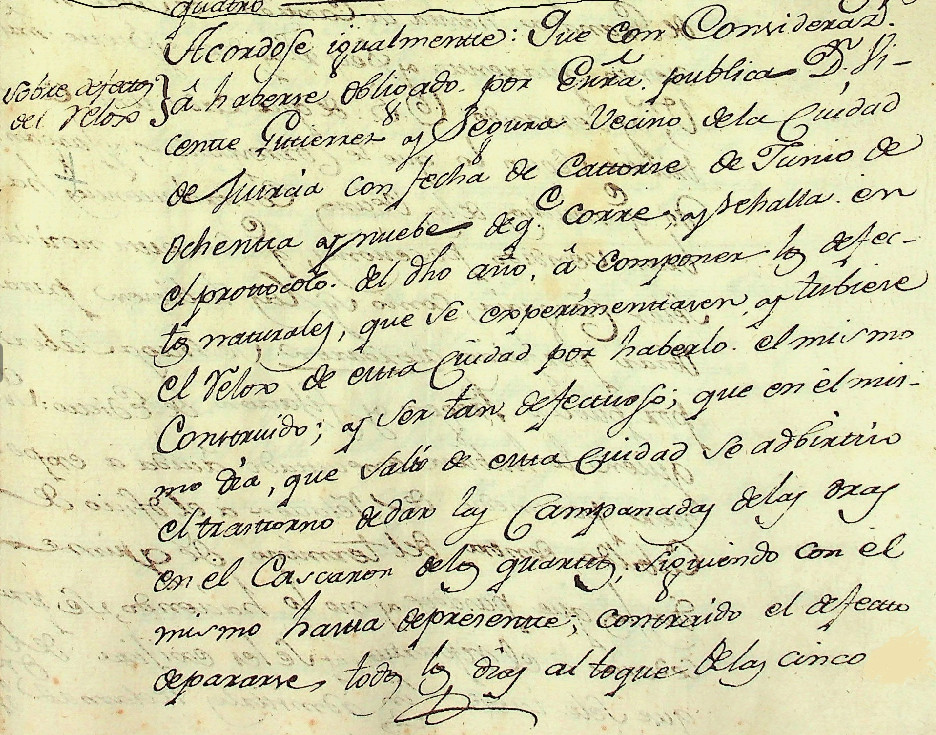 quatro
Acordose igualmente: Que con Consideraz.n
sobre defectos
del Relox
â haberse obligado por Escrâ. publica D.n Vi-
cente Gutierrez y Segura Vecino de la Ciudad
de Murcia con fecha de Catorse de Junio de
ochenta y nuebe de q.e corre, y se halla en
el protocolo. del dho año, â componer los defec-
tos naturales, que se experimentasen, y tubiere
el Relox de esta Ciudad por haberlo el mismo
Contruido; y ser tan defectuoso; que en el mis-
mo dia, que salió de esta Ciudad se adbirtio
el trastorno de dar las Campanadas de las oras
en el Cascaron de los quartos, siguiendo con el
mismo hasta de presente; contraido el defecto
de pararse todos los dias al toque de las cinco